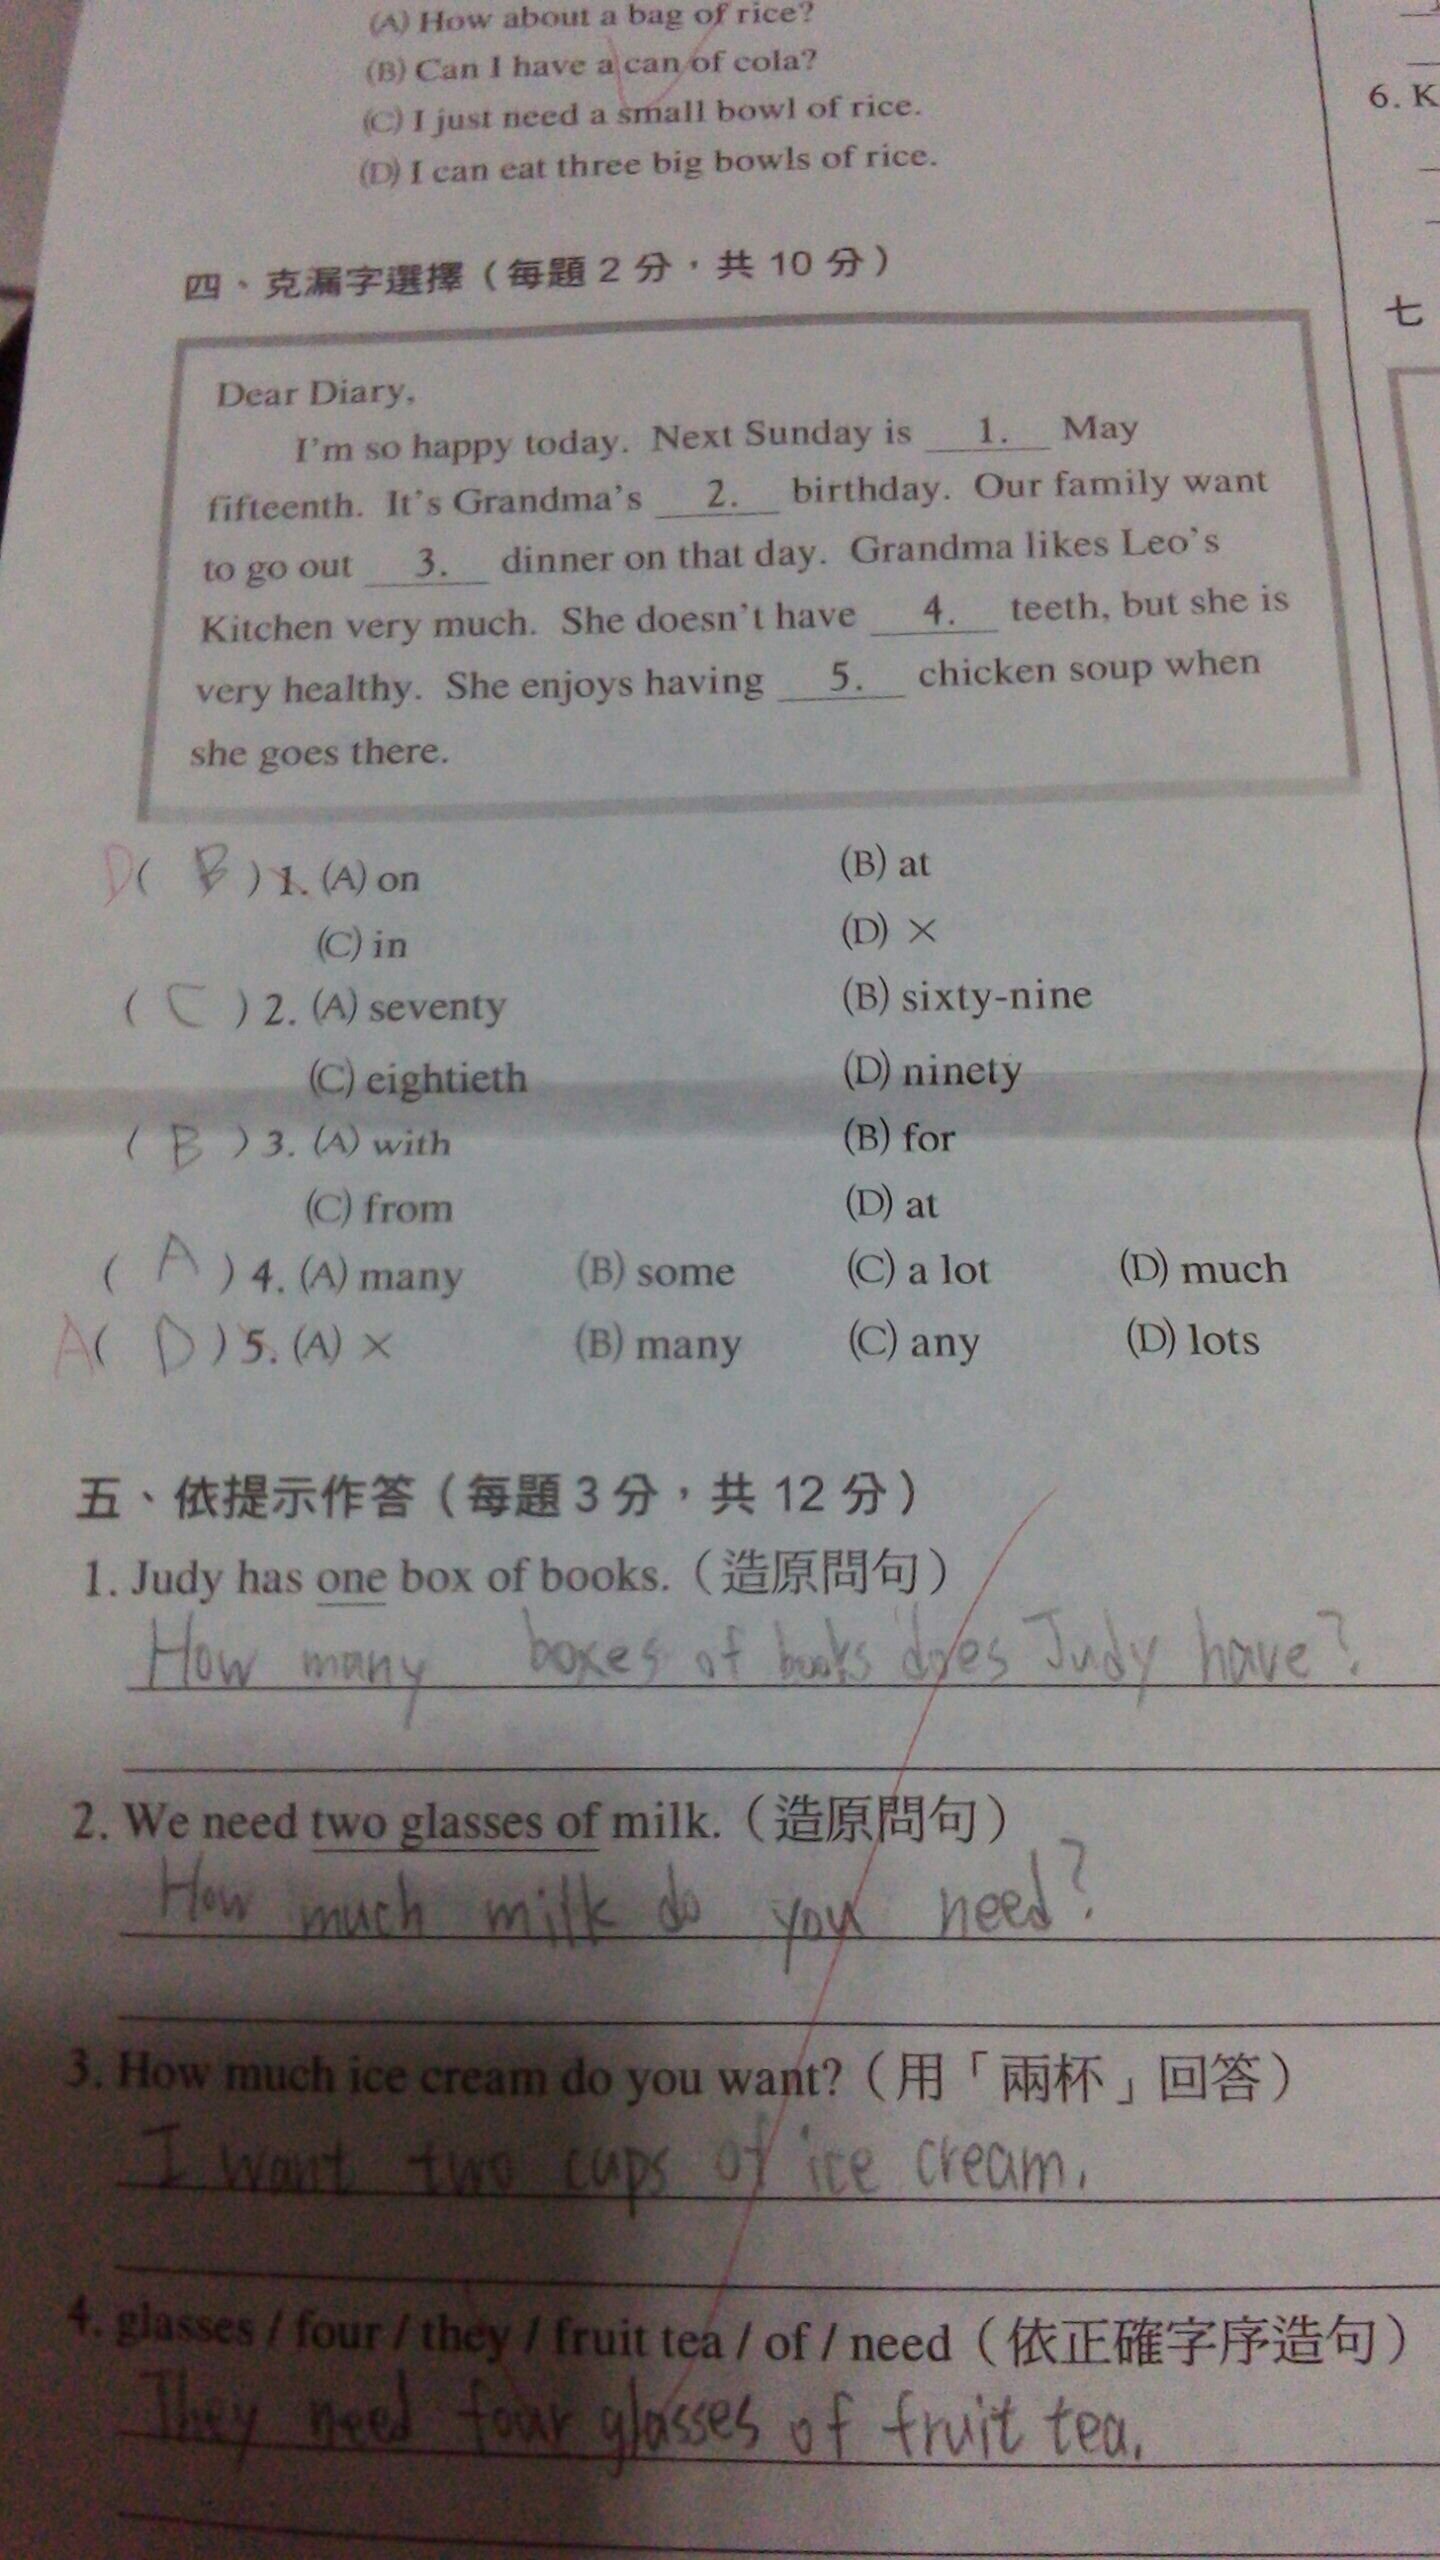 (A) How about a bag of rice?
(B) Can I have a can of cola?
(C) I just need a small bowl of rice.
(D) I can eat three big bowls of rice.
6. K
四、克漏字選擇（每題 2 分，共 10 分）
七
Dear Diary,
I'm so happy today. Next Sunday is 1. May
fifteenth. It's Grandma's 2. birthday. Our family want
to go out 3. dinner on that day. Grandma likes Leo's
Kitchen very much. She doesn't have 4. teeth, but she is
very healthy. She enjoys having 5. chicken soup when
she goes there.
D ( B ) 1. (A) on (B) at
(C) in (D) ×
( C ) 2. (A) seventy (B) sixty-nine
(C) eightieth (D) ninety
( B ) 3. (A) with (B) for
(C) from (D) at
( A ) 4. (A) many (B) some (C) a lot (D) much
A ( D ) 5. (A) × (B) many (C) any (D) lots
五、依提示作答（每題 3 分，共 12 分）
1. Judy has one box of books.（造原問句）
How many boxes of books does Judy have?
2. We need two glasses of milk.（造原問句）
How much milk do you need?
3. How much ice cream do you want?（用「兩杯」回答）
I want two cups of ice cream.
4. glasses / four / they / fruit tea / of / need（依正確字序造句）
They need four glasses of fruit tea.